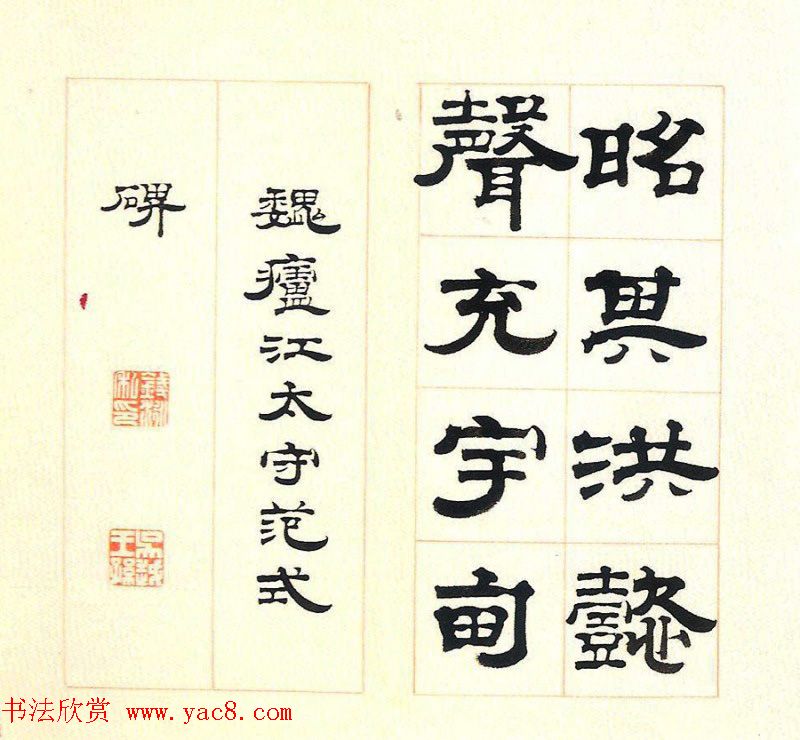 昭其洪懿
聲充宇甸
魏廬江太守范式
碑
书法欣赏 www.yac8.com